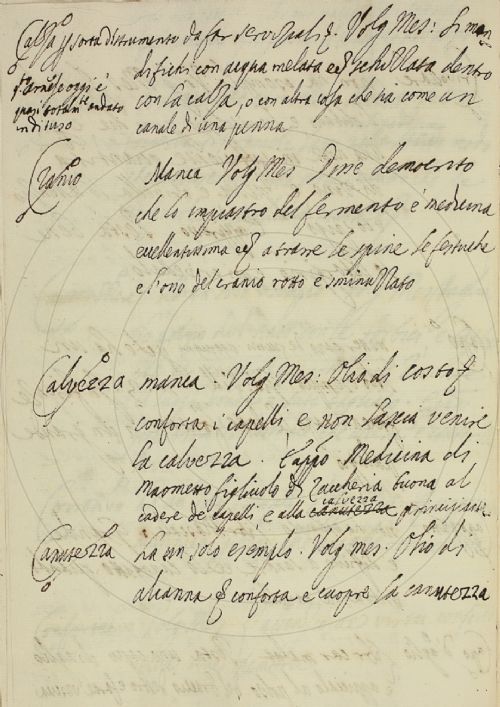 Calza p sorta di strumento da far servizziali &c. Volg Mes: Si man=
di fichi con acqua melata &c schizzata dentro
con la calza, o con altra cosa che sia come un
canale di una penna
arnese oggi è
quasi totalmte andato
in disuso
Cranio Manca Volg Mes Dice democrito
che lo impiastro del fermento è medicina
eccellentissima &c a trarre le spine le festuche
e l'osso del cranio rotto e sminuzzato
Calvezza manca. Volg Mes: Olio di costo &c
conforta i capelli e non lascia venire
la calvezza. E appo. Medicina di
Maometto figliuolo di Zaccheria buona al
calvezza
cadere de capelli e alla canutezza principiante
Canutezza ha un solo esempio. Volg mes. Olio di
alcanna &c conforta e cuopre la canutezza